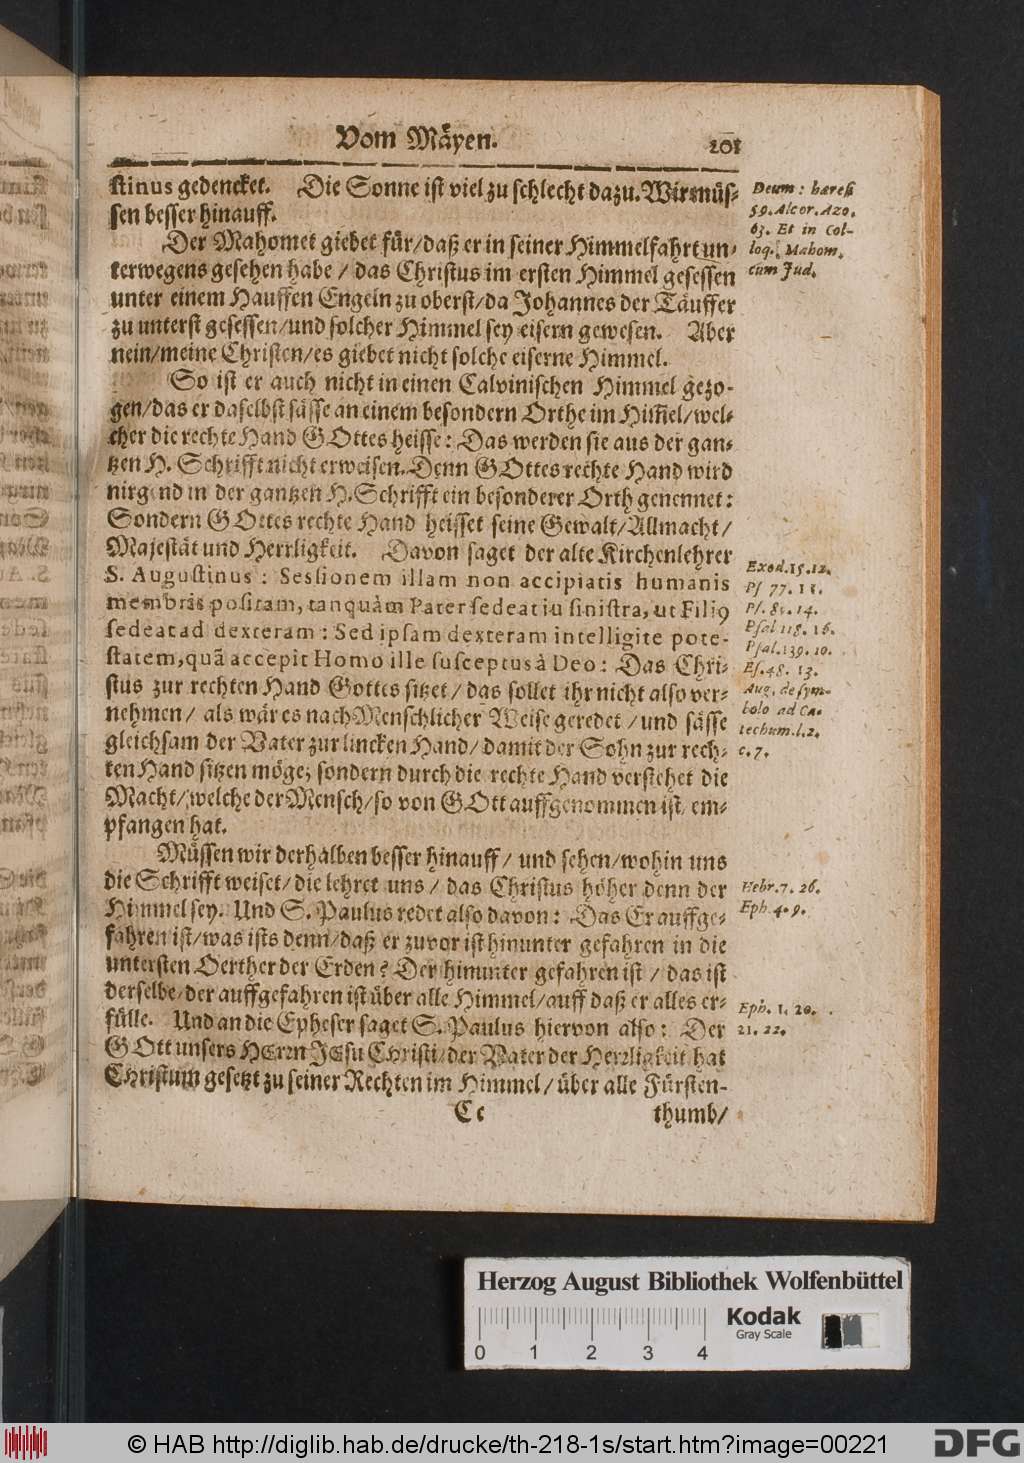 Vom Mäyen. 201
stinus gedencket. Die Sonne ist viel zu schlecht dazu. Wir müs-
sen besser hinauff.
Der Mahomet giebet für/daß er in seiner Himmelfahrt un-
terwegens gesehen habe / das Christus im ersten Himmel gesessen
unter einem Hauffen Engeln zu oberst/da Johannes der Täuffer
zu unterst gesessen/und solcher Himmel sey eisern gewesen. Aber
nein/meine Christen/es giebet nicht solche eiserne Himmel.
So ist er auch nicht in einen Calvinischen Himmel gezo-
gen/das er daselbst sässe an einem besondern Orthe im Him̃el/wel-
cher die rechte Hand GOttes heisse: Das werden sie aus der gan-
tzen H. Schrifft nicht erweisen. Denn GOttes rechte Hand wird
nirgend in der gantzen H. Schrifft ein besonderer Orth genennet:
Sondern GOttes rechte Hand heisset seine Gewalt/Allmacht/
Majestät und Herrligkeit. Davon saget der alte Kirchenlehrer
S. Augustinus: Sessionem illam non accipiatis humanis
membris positam, tanquàm Pater sedeat in sinistra, ut Filiꝰ
sedeat ad dexteram: Sed ipsam dexteram intelligite pote-
statem, quã accepit Homo ille susceptus à Deo: Das Chri-
stus zur rechten Hand Gottes sitzet / das sollet ihr nicht also ver-
nehmen / als wär es nach Menschlicher Weise geredet / und sässe
gleichsam der Vater zur lincken Hand / damit der Sohn zur rech-
ten Hand sitzen möge; sondern durch die rechte Hand verstehet die
Macht/welche der Mensch/so von GOtt auffgenommen ist/em-
pfangen hat.
Müssen wir derhalben besser hinauff / und sehen/wohin uns
die Schrifft weiset/die lehret uns / das Christus höher denn der
Himmel sey. Und S. Paulus redet also davon: Das Er auffge-
fahren ist/was ists denn/daß er zuvor ist hinunter gefahren in die
untersten Oerther der Erden? Der hinunter gefahren ist / das ist
derselbe/der auffgefahren ist über alle Himmel/auff daß er alles er-
fülle. Und an die Epheser saget S. Paulus hiervon also: Der
GOtt unsers HErrn JEsu Christi/der Vater der Herrligkeit hat
Christum gesetzt zu seiner Rechten im Himmel / über alle Fürsten-
Cc thumb/
Deum: hæres
59. Alcor. Azo.
63. Et in Col-
loq. Mahom.
cum Jud.
Exod. 15. 12.
Ps 77. 11.
Ps. 89. 14.
Psal 118. 16.
Psal. 139. 10.
Es. 48. 13.
Aug. de sym-
bolo ad Ca-
techum. l. 2.
c. 7.
Hebr. 7. 26.
Eph 4. 9.
Eph. 1. 20.
21. 22.
Herzog August Bibliothek Wolfenbüttel
Kodak
Gray Scale
0 1 2 3 4
© HAB http://diglib.hab.de/drucke/th-218-1s/start.htm?image=00221
DFG